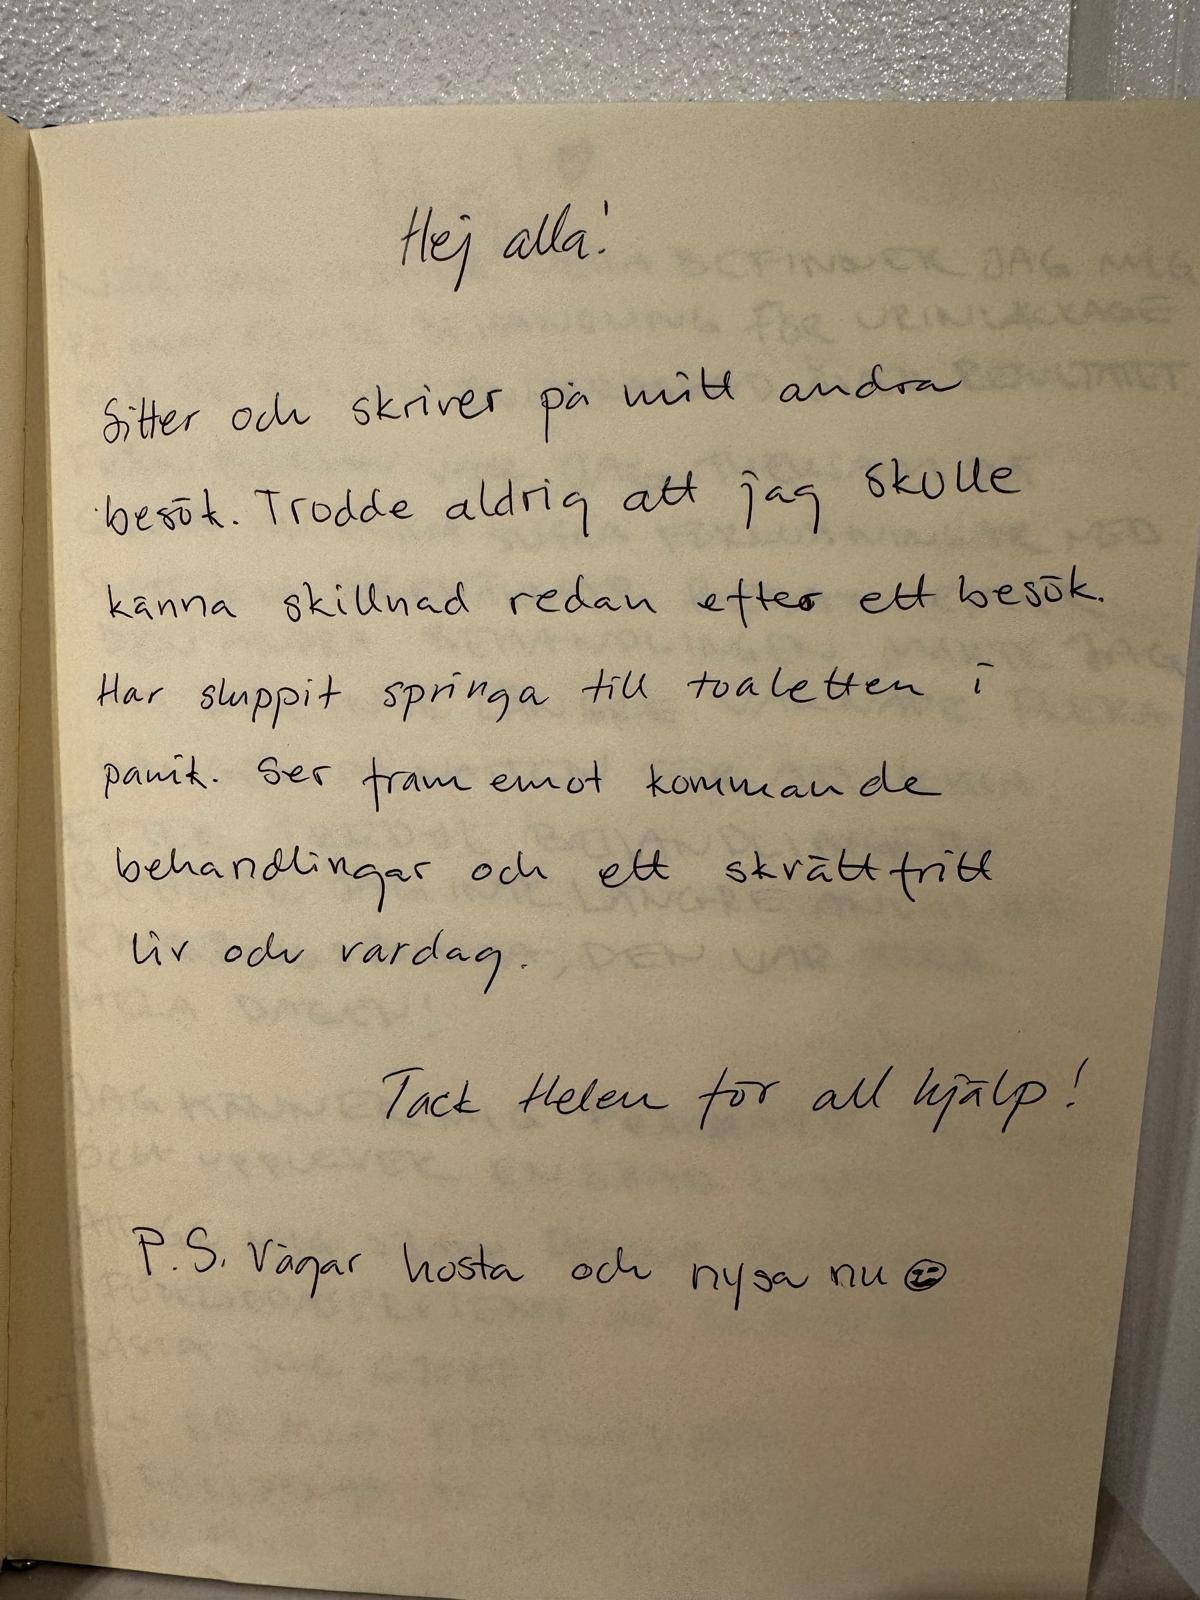 Hej alla!
Sitter och skriver på mitt andra
besök. Trodde aldrig att jag skulle
känna skillnad redan efter ett besök.
Har sluppit springa till toaletten i
panik. Ser fram emot kommande
behandlingar och ett skvättfritt
liv och vardag.
Tack Helen för all hjälp!
P.S. Vågar hosta och nysa nu 😉